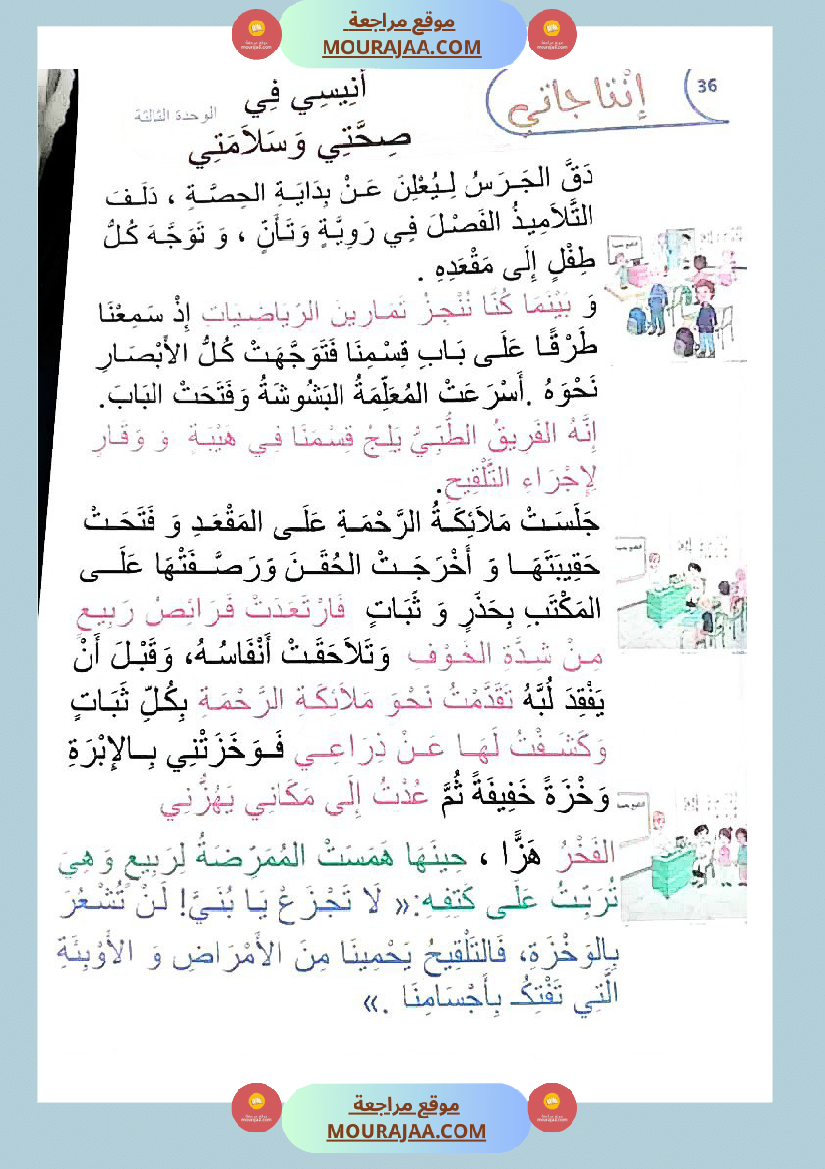 موقع مراجعة
MOURAJAA.COM
36
إِنْتَاجَاتِي
أَنِيسِي فِي
الوحدة الثالثة
صِحَّتِي وَسَلاَمَتِي
دَقَّ الجَرَسُ لِيُعْلِنَ عَنْ بِدَايَةِ الحِصَّةِ ، دَلَفَ
التَّلاَمِيذُ الفَصْلَ فِي رَوِيَّةٍ وَتَأَنٍّ ، وَ تَوَجَّهَ كُلُّ
طِفْلٍ إِلَى مَقْعَدِهِ .
وَ بَيْنَمَا كُنَّا نُنْجِزُ تَمَارِينَ الرِّيَاضِيَاتِ إِذْ سَمِعْنَا
طَرْقًا عَلَى بَابِ قِسْمِنَا فَتَوَجَّهَتْ كُلُّ الأَبْصَارِ
نَحْوَهُ .أَسْرَعَتْ المُعَلِّمَةُ البَشُوشَةُ وَفَتَحَتْ البَابَ.
إِنَّهُ الفَرِيقُ الطُّبِّيُّ يَلِجُ قِسْمَنَا فِي هَيْبَةٍ وَ وَقَارٍ
لِإِجْرَاءِ التَّلْقِيحِ.
جَلَسَتْ مَلاَئِكَةُ الرَّحْمَةِ عَلَى المَقْعَدِ وَ فَتَحَتْ
حَقِيبَتَهَا وَ أَخْرَجَتْ الحُقَنَ وَرَصَّفَتْهَا عَلَى
المَكْتَبِ بِحَذَرٍ وَ ثَبَاتٍ فَارْتَعَدَتْ فَرَائِصُ رَبِيعٍ
مِنْ شِدَّةِ الخَوْفِ وَتَلاَحَقَتْ أَنْفَاسُهُ، وَقَبْلَ أَنْ
يَفْقِدَ لُبَّهُ تَقَدَّمْتُ نَحْوَ مَلاَئِكَةِ الرَّحْمَةِ بِكُلِّ ثَبَاتٍ
وَكَشَفْتُ لَهَا عَنْ ذِرَاعِي فَوَخَزَتْنِي بِالإِبْرَةِ
وَخْزَةً خَفِيفَةً ثُمَّ عُدْتُ إِلَى مَكَانِي يَهُزُّنِي
الفَخْرُ هَزًّا ، حِينَهَا هَمَسَتْ المُمَرِّضَةُ لِرَبِيعٍ وَهِيَ
تُرَبِّتُ عَلَى كَتِفِهِ:« لَا تَجْزَعْ يَا بُنَيَّ! لَنْ تَشْعُرَ
بِالوَخْزَةِ، فَالتَلْقِيحُ يَحْمِينَا مِنَ الأَمْرَاضِ وَ الأَوْبِئَةِ
الَّتِي تَفْتِكُـ بِأَجْسَامِنَا .»
موقع مراجعة
MOURAJAA.COM